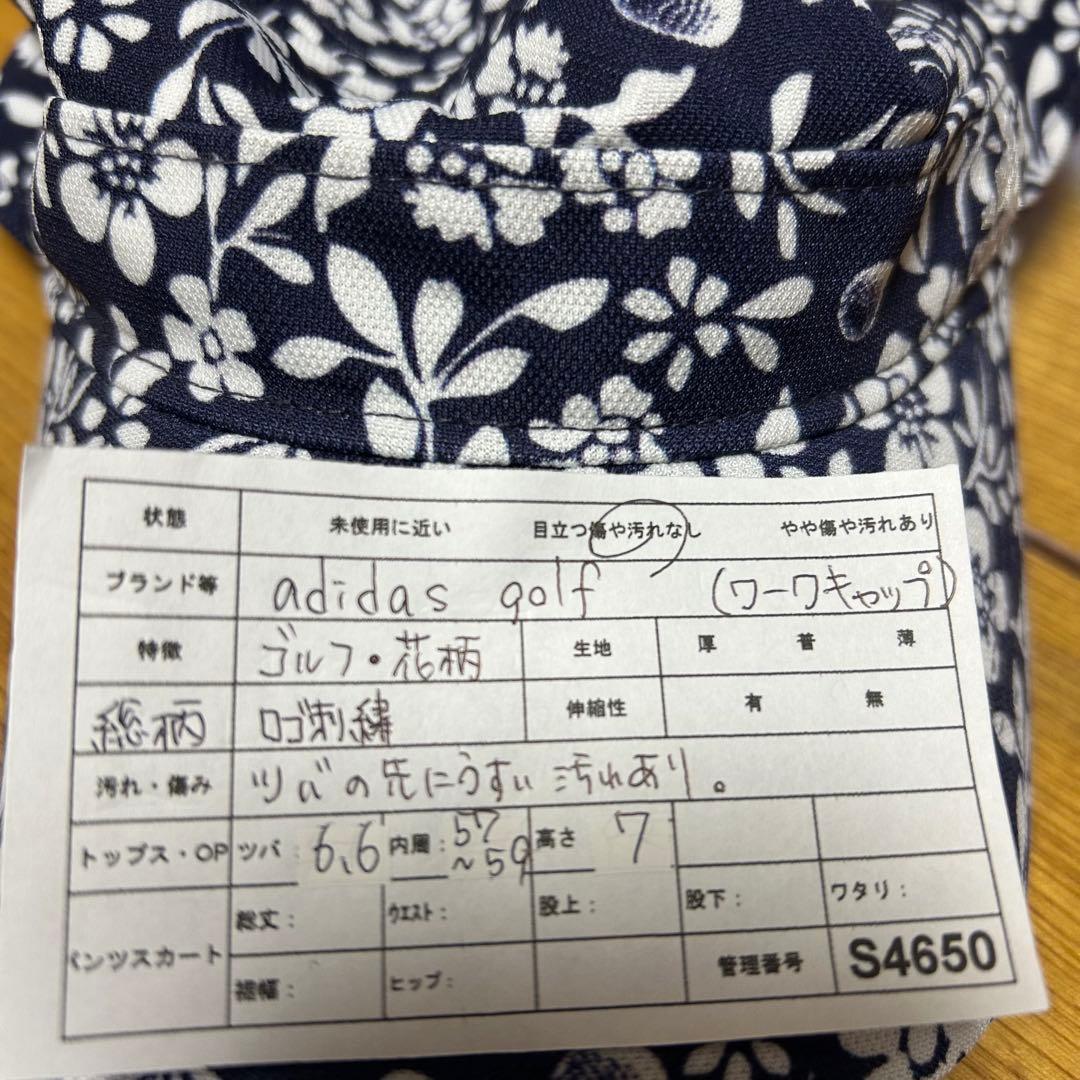 状態 未使用に近い 目立つ傷や汚れなし やや傷や汚れあり
ブランド等 adidas golf (ワークキャップ)
特徴 ゴルフ・花柄 生地 厚 普 薄
総柄 ロゴ刺繍 伸縮性 有 無
汚れ・傷み ツバの先にうすい汚れあり。
トップス・OP ツバ 6.6 内周: 57~59 高さ 7
パンツスカート 総丈: ウエスト: 股上: 股下: ワタリ:
裾幅: ヒップ: 管理番号 S4650